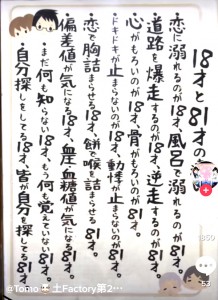 18才と81才の
恋に溺れるのが18才、風呂で溺れるのが81才
道路を爆走するのが18才、逆走するのが81才。
心がもろいのが18才、骨がもろいのが81才。
ドキドキが止まらないのが18才、動悸が止まらないのが81才。
恋で胸詰まらせる18才、餅で喉を詰まらせる81才。
偏差値が気になる18才、血圧・血糖値が気になる81才。
まだ何も知らない18才、もう何も覚えていない81才。
自分探しをしてる18才、皆が自分を探してる81才
@Tomo
土Factory第2…